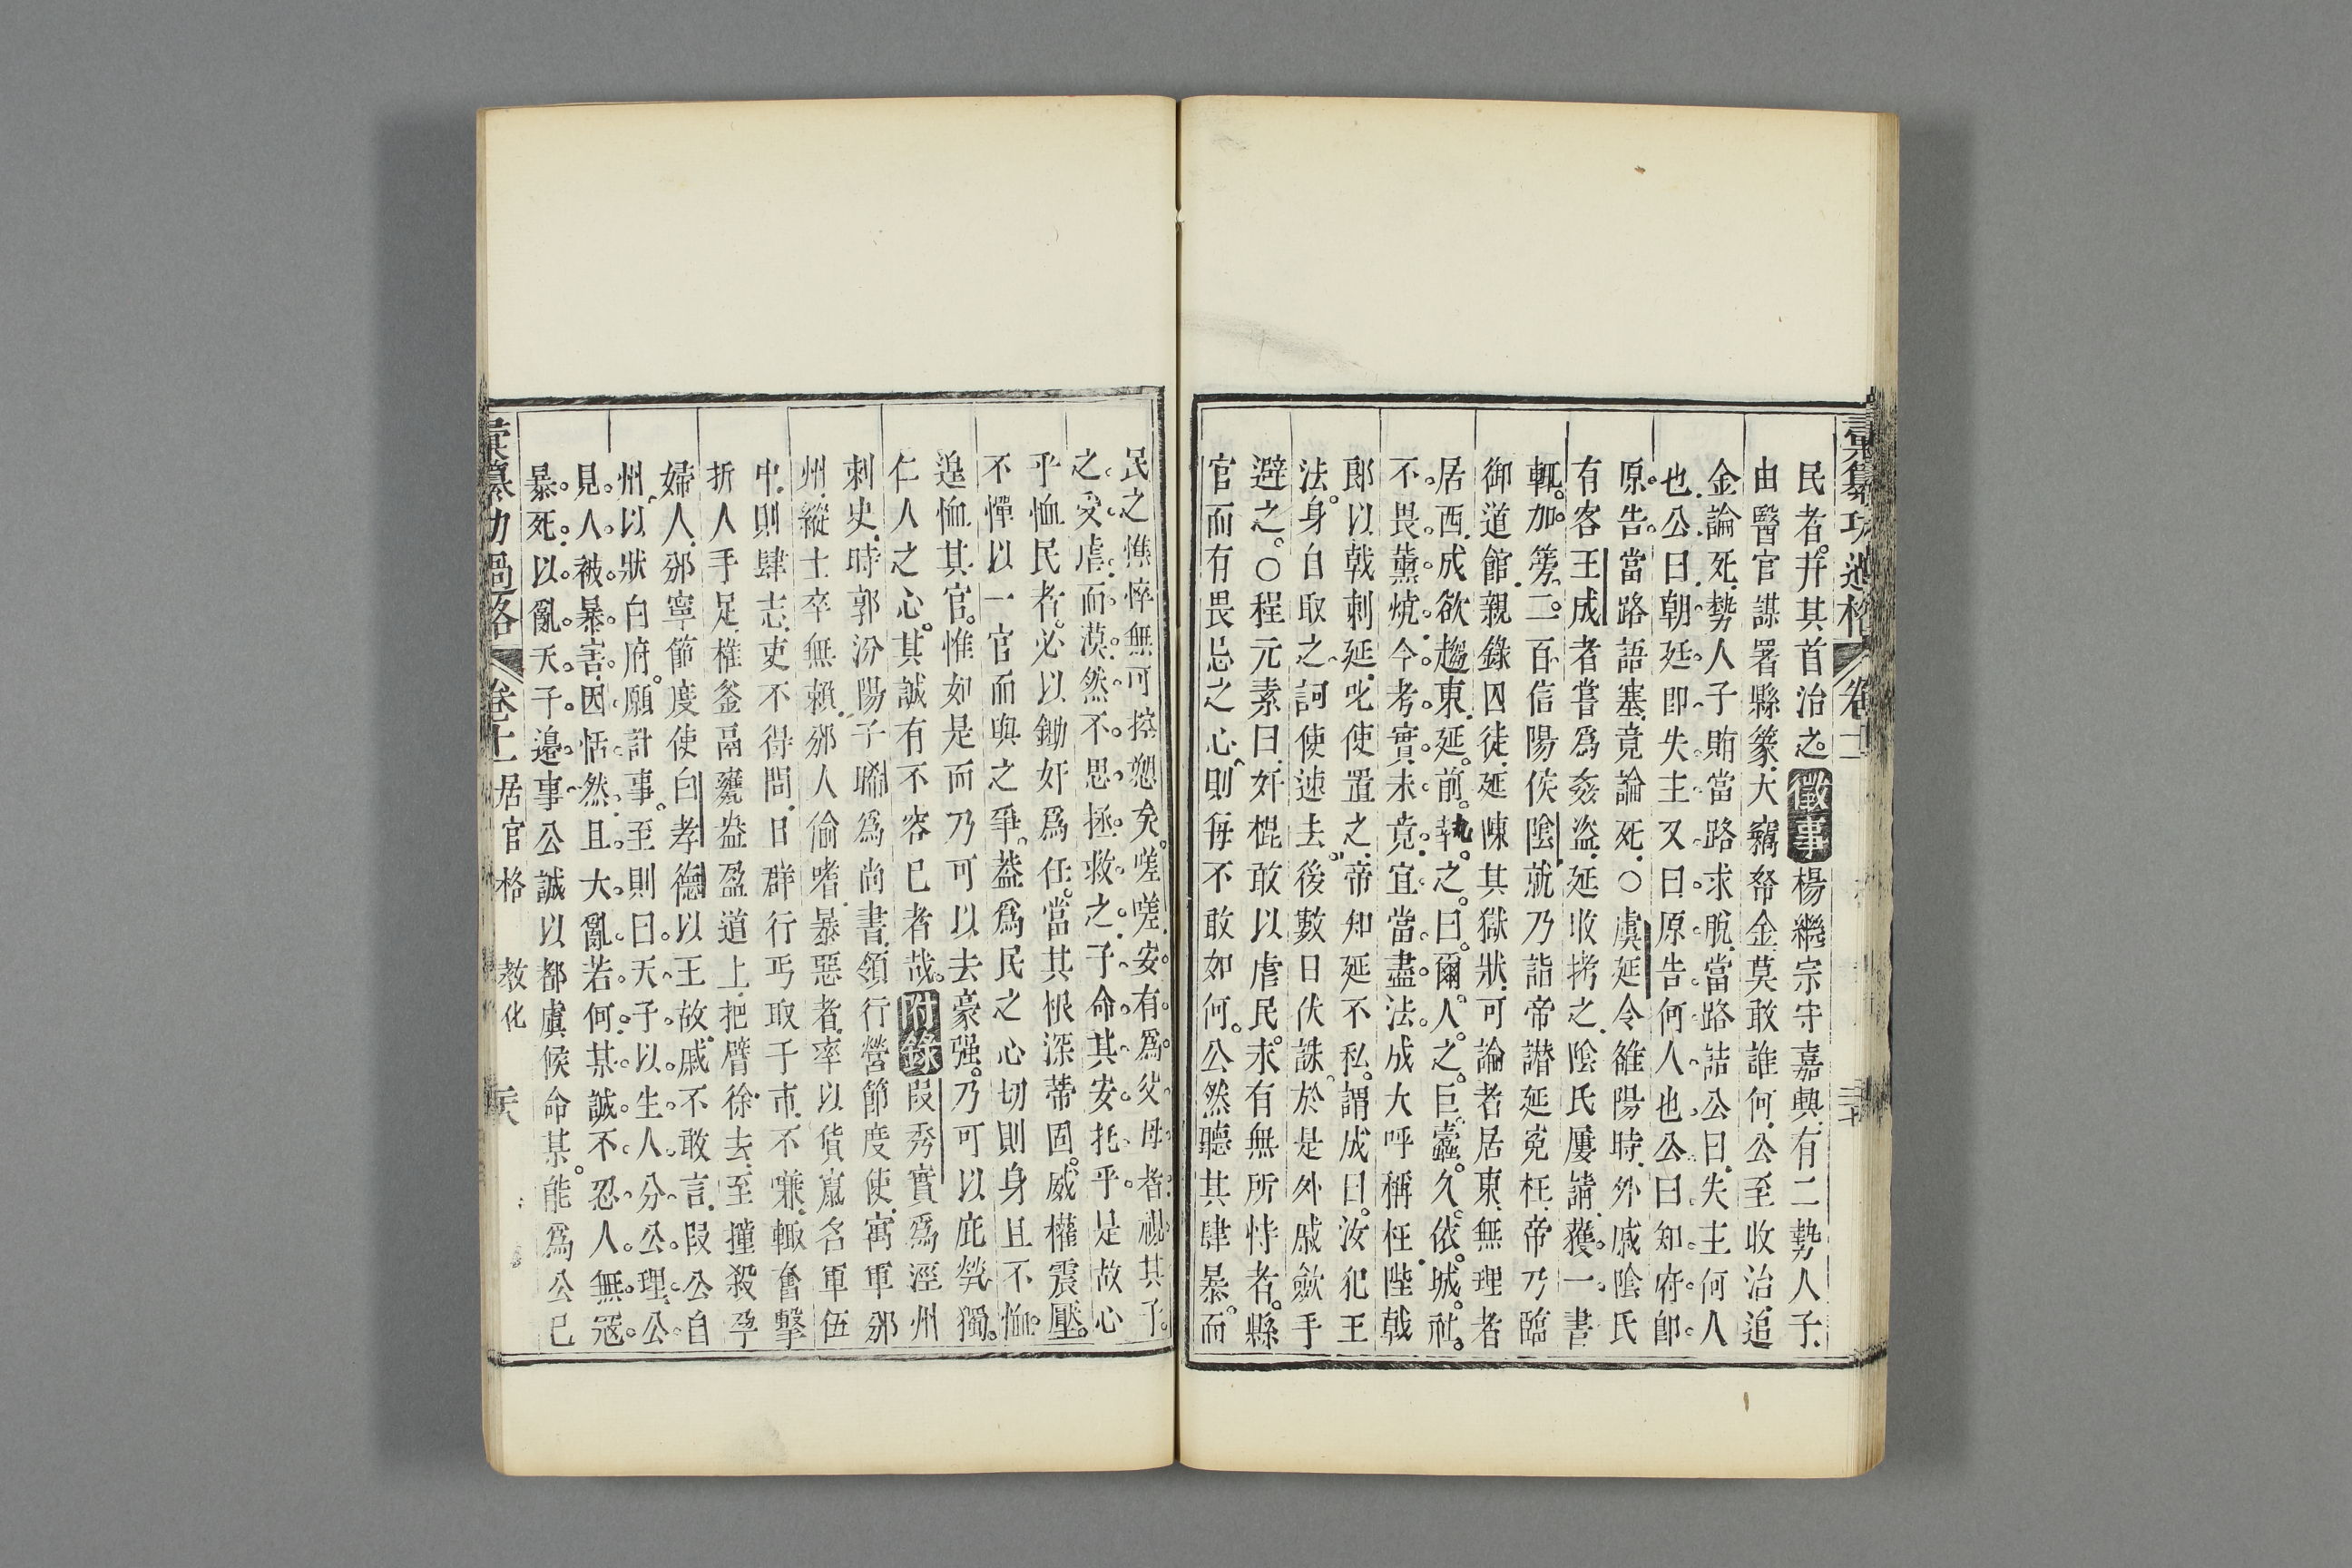 彙纂功過格 卷十一
民者。幷其首治之。徵事楊繼宗守嘉興。有二勢人子。
由醫官謀署縣篆。大竊帑金。莫敢誰何。公至收治。追
金論死。勢人子賄當路求脫。當路詰公曰。失主何人
也。公曰。朝廷卽失主。又曰。原告何人也。公曰。知府卽
原告。當路語塞。竟論死。○虞延令雒陽時。外戚陰氏
有客王成者。嘗爲姦盜。延收拷之。陰氏屢請。獲一書
輒加篣二百。信陽侯陰就乃詣帝譖延寃枉。帝乃臨
御道館。親錄囚徒。延陳其獄狀。可論者居東。無理者
居西。成欲趨東。延前執之。曰。爾人之巨蠹。久依城社。
不畏薰燒。今考實未竟。宜當盡法。成大呼稱枉。陛戟
郎以戟刺延。叱使置之。帝知延不私。謂成曰。汝犯王
法。身自取之。訶使速去。後數日伏誅。於是外戚歛手
避之。○程元素曰。奸棍敢以虐民。未有無所恃者。縣
官而有畏忌之心。則每不敢如何。公然聽其肆暴。而
民之憔悴無可控愬矣。嗟嗟。安有爲父母者。視其子
之受虐。而漠然不思拯救之。子命其安托乎。是故心
乎恤民者。必以鋤奸爲任。當其根深蒂固。威權震壓。
不憚以一官而與之爭。葢爲民之心切則身且不恤。
遑恤其官。惟如是而乃可以去豪强。乃可以庇煢獨。
仁人之心。其誠有不容已者哉。附錄段秀實爲涇州
刺史。時郭汾陽子晞爲尚書。領行營節度使。寓軍邠
州。縱士卒無賴。邠人偷嗜暴惡者。率以貨竄名軍伍
中。則肆志。吏不得問。日群行丐取于市。不嗛。輒奮擊
折人手足。椎釜鬲甕盎盈道上。把臂徐去。至撞殺孕
婦人。邠寧節度使白孝德以王故。戚不敢言。段公自
州以狀白府。願計事。至則曰。天子以生人分公理。公
見人被暴害。因恬然。且大亂若何。某誠不忍人無寇
暴死。以亂天子邉事。公誠以都虞候命某。能爲公已
彙纂功過格 卷十一 居官格 敎化